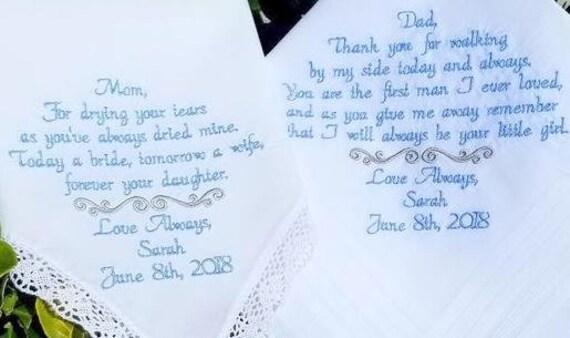 Mom,
For drying your tears
as you've always dried mine.
Today a bride, tomorrow a wife,
forever your daughter.
Love Always,
Sarah
June 8th, 2018
Dad,
Thank you for walking
by my side today and always.
You are the first man I ever loved,
and as you give me away remember
that I will always be your little girl.
Love Always,
Sarah
June 8th, 2018